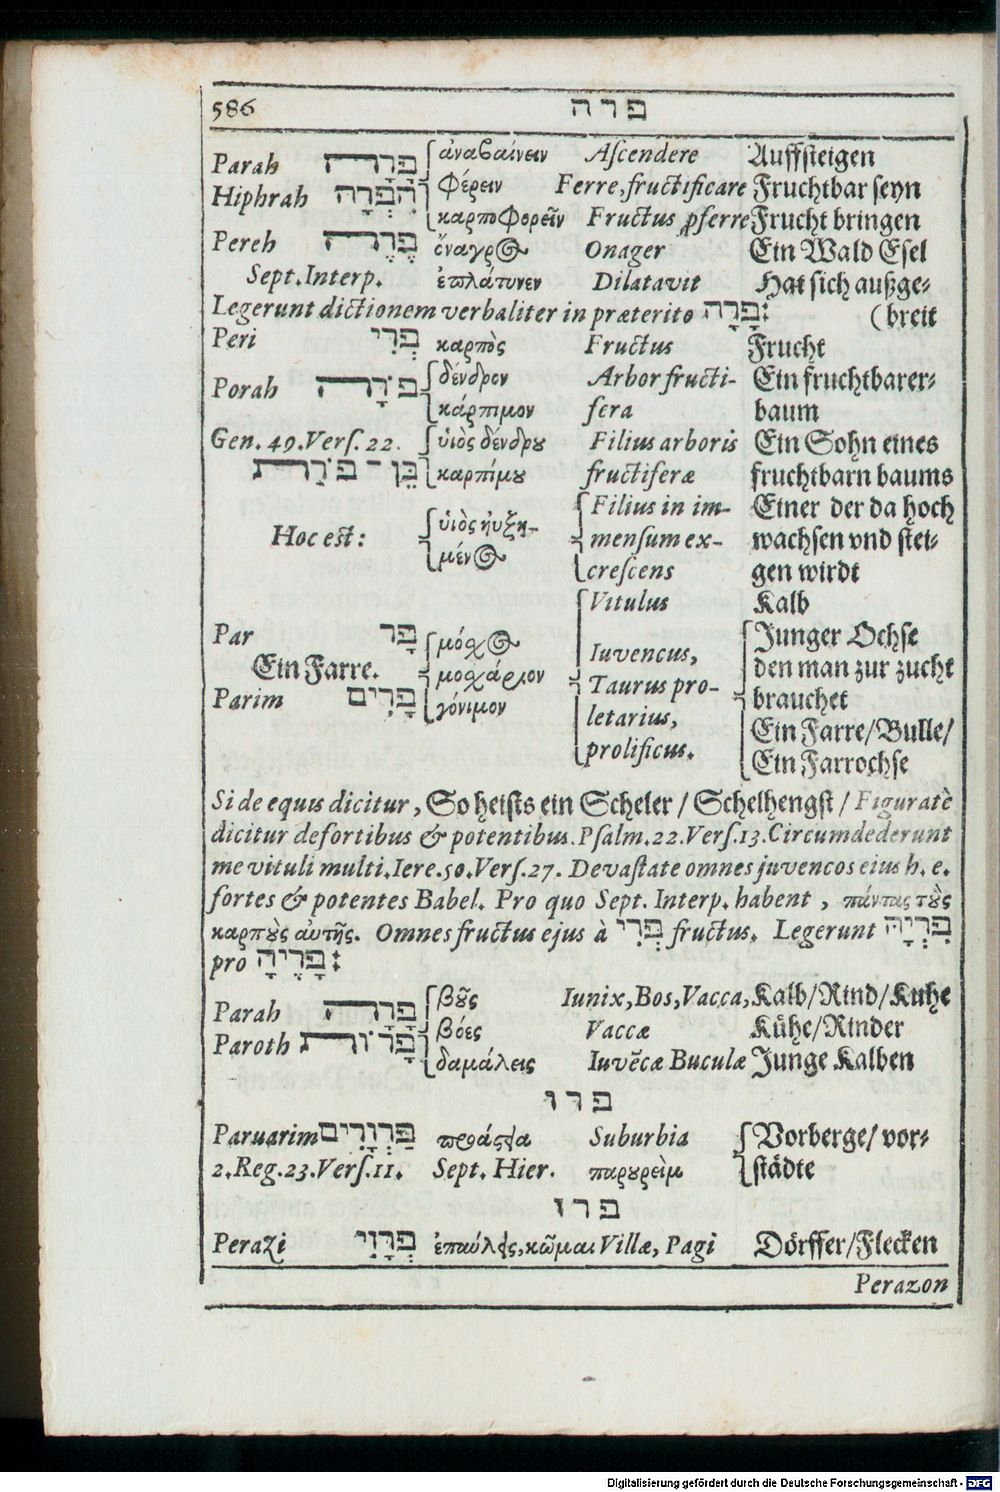 586 פרה
Parah פָּרָה ἀναβαίνειν Ascendere Auffsteigen
Hiphrah הִפְרָה φέρειν Ferre, fructificare Fruchtbar seyn
καρποφορεῖν Fructus ꝓferre Frucht bringen
Pereh פֶּרֶה ὄναγρος Onager Ein Wald Esel
Sept. Interp. ἐπλάτυνεν Dilatavit Hat sich außge-
Legerunt dictionem verbaliter in præterito פָּרָה: (breit
Peri פְּרִי καρπὸς Fructus Frucht
Porah פֹּרָה δένδρον Arbor fructi- Ein fruchtbarer-
κάρπιμον fera baum
Gen. 49. Vers. 22. ὑιὸς δένδρου Filius arboris Ein Sohn eines
בֵּן־פֹּרָת καρπίμου fructiferæ fruchtbarn baums
Filius in im- Einer der da hoch
Hoc est: ὑιὸς ηὐξη- mensum ex- wachsen vnd stei-
μένος crescens gen wirdt
Vitulus Kalb
Par פָּר μόσχος Iuvencus, Junger Ochse
Ein Farre. μοσχάριον Taurus pro- den man zur zucht
Parim פָּרִים γόνιμον letarius, brauchet
prolificus. Ein Farre/Bulle/
Ein Farrochse
Si de equis dicitur, So heists ein Scheler / Schelhengst / Figuratè
dicitur de fortibus & potentibus. Psalm. 22. Vers. 13. Circumdederunt
me vituli multi. Iere. 50. Vers. 27. Devastate omnes juvencos eius h. e.
fortes & potentes Babel. Pro quo Sept. Interp. habent, πάντας τοὺς
καρποὺς αὐτῆς. Omnes fructus ejus à פְּרִי fructus. Legerunt פִּרְיָהּ
pro פָּרֶיהָ:
Parah פָּרָה βοῦς Iunix, Bos, Vacca, Kalb/Rind/Kuhe
Paroth פָּרוֹת βόες Vaccæ Kühe/Rinder
δαμάλεις Iuvẽcæ Buculæ Junge Kalben
פרו
Paruarim פַּרְוָרִים Suburbia Vorberge/ vor-
2. Reg. 23. Vers. 11. Sept. Hier. παρουρεὶμ städte
פרז
Perazi פְּרָזִי ἐπαύλεις, κῶμαι Villæ, Pagi Dörffer/Flecken
Perazon
Digitalisierung gefördert durch die Deutsche Forschungsgemeinschaft - DFG